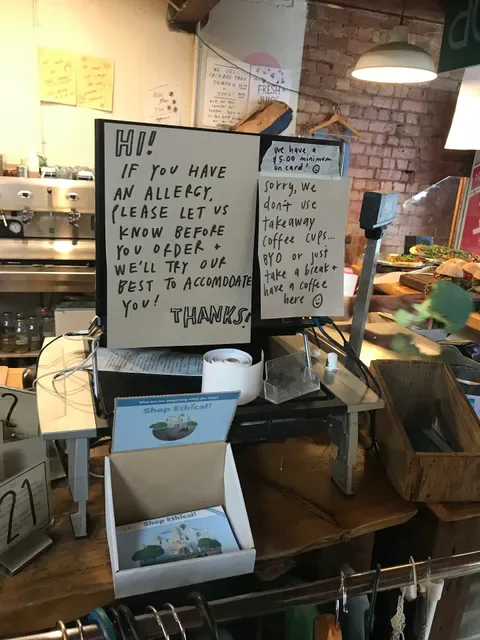 HI!
IF YOU HAVE
AN ALLERGY,
PLEASE LET US
KNOW BEFORE
YOU ORDER +
WE'LL TRY OUR
BEST TO ACCOMODATE
YOU!
THANKS!
we have a
$5.00 minimum
on card!
Sorry, we
don't use
takeaway
coffee cups...
BYO or just
take a break +
have a coffee
here
FRESH
JUICE
Shop Ethical!
Shop Ethical!
2
21